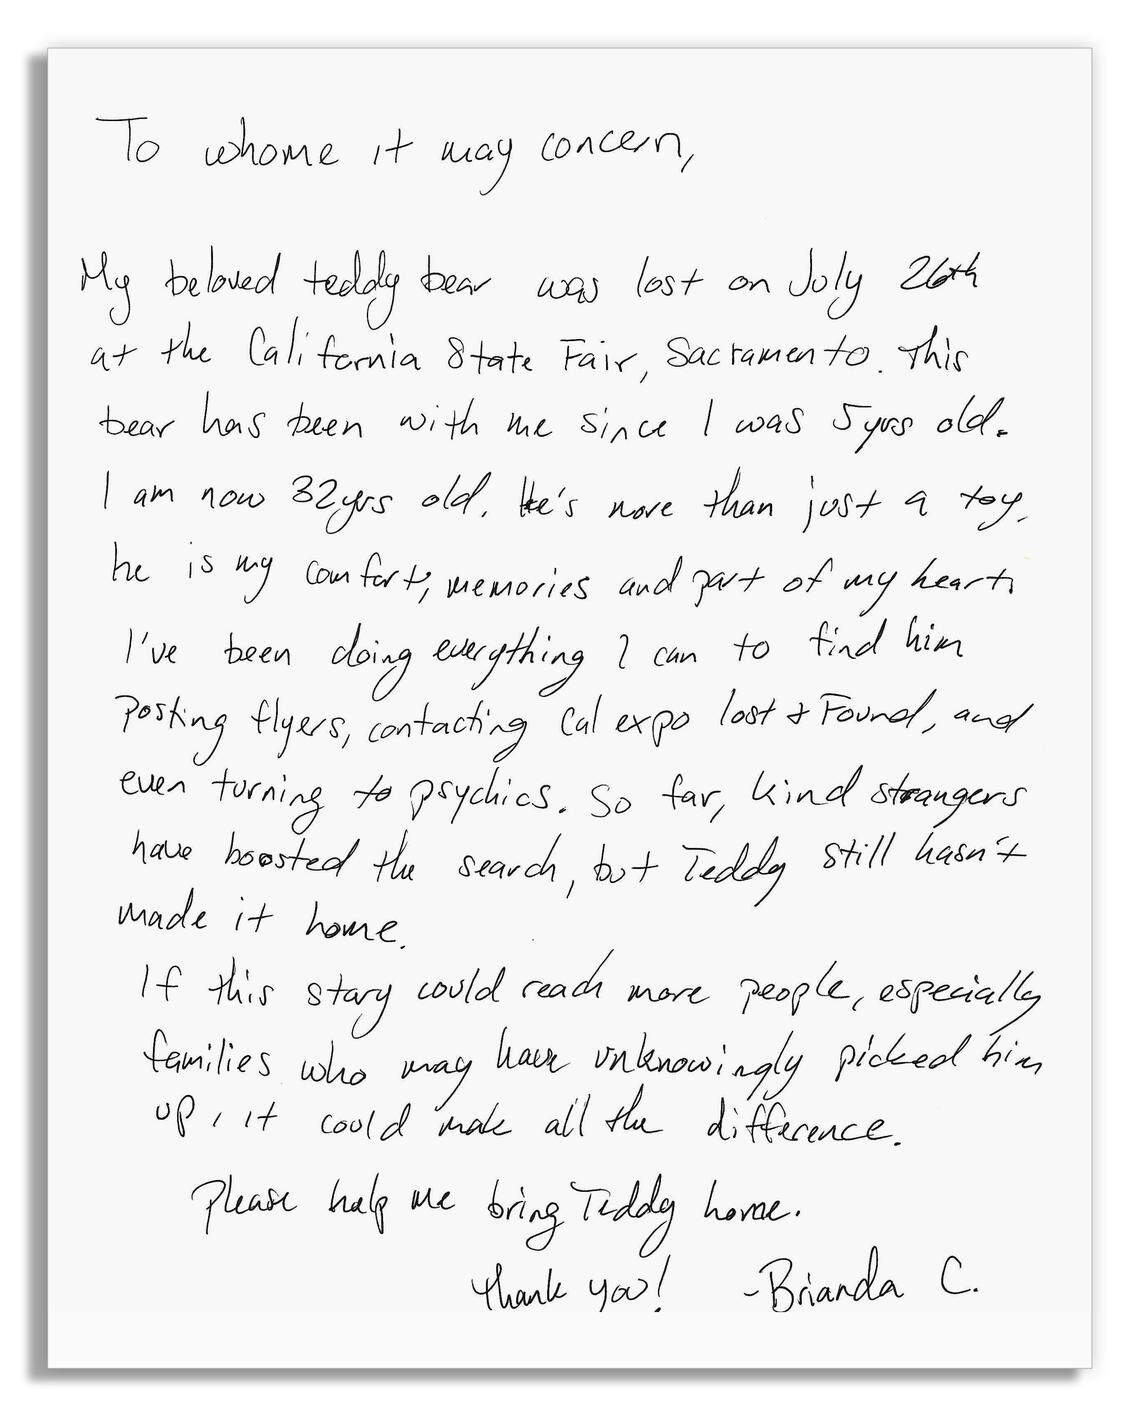 To whome it may concern,
My beloved teddy bear was lost on July 26th
at the California State Fair, Sacramento. This
bear has been with me since I was 5yrs old.
I am now 32yrs old. He's more than just a toy.
he is my comfort, memories and part of my heart.
I've been doing everything I can to find him
Posting flyers, contacting Cal expo lost & Found, and
even turning to psychics. So far, kind strangers
have boosted the search, but Teddy still hasn't
made it home.
If this story could reach more people, especially
families who may have unknowingly picked him
up, it could make all the difference.
Please help me bring Teddy home.
Thank you! -Brianda C.